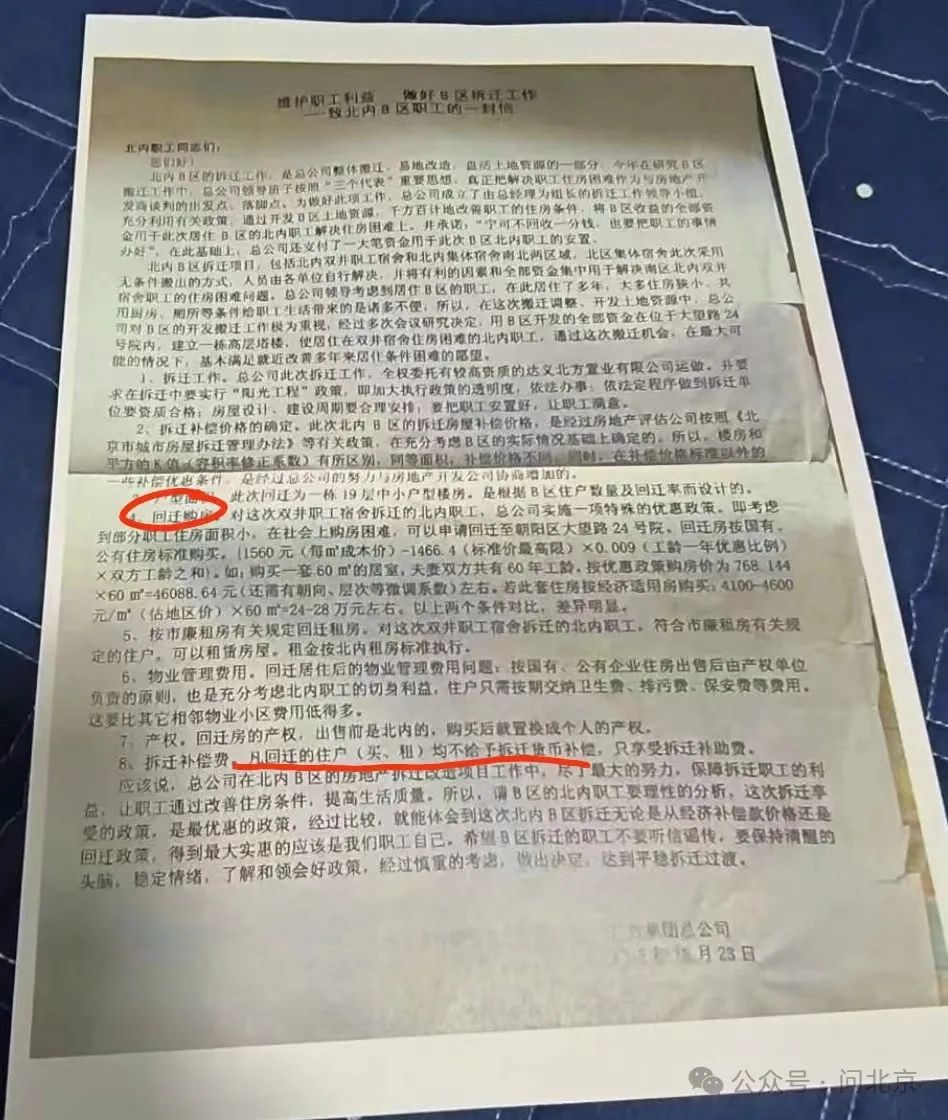 维护职工利益 做好B区拆迁工作
——致北内B区职工的一封信
北内职工同志们：
您们好！
北内B区的拆迁工作，是总公司整体搬迁、易地改造，盘活土地资源的一部分，今年在研究B区
搬迁工作中，总公司领导班子按照“三个代表”重要思想，真正把解决职工住房困难作为与房地产开
发商谈判的出发点、落脚点。为做好此项工作，总公司成立了由总经理为组长的拆迁工作领导小组，
充分利用有关政策，通过开发B区土地资源，千方百计地改善职工的住房条件，将B区收益的全部资
金用于此次居住B区的北内职工解决住房困难上。并承诺：“宁可不回收一分钱，也要把职工的事情
办好”。在此基础上，总公司还支付了一大笔资金用于此次B区北内职工的安置。
北内B区拆迁项目，包括北内双井职工宿舍和北内集体宿舍南北两区域，北区集体宿舍此次采用
无条件搬出的方式，人员由各单位自行解决，并将有利的因素和全部资金集中用于解决南区北内双井
宿舍职工的住房困难问题。总公司领导考虑到居住B区的职工，在此居住了多年，大多住房狭小、共
用厨房、厕所等条件给职工生活带来的是诸多不便，所以，在这次搬迁调整、开发土地资源中，总公
司对B区的开发搬迁工作极为重视，经过多次会议研究决定，用B区开发的全部资金在位于大望路24
号院内，建立一栋高层塔楼，使居住在双井宿舍住房困难的北内职工，通过这次搬迁机会，在最大可
能的情况下，基本满足就近改善多年来居住条件困难的愿望。
1、拆迁工作。总公司此次拆迁工作，全权委托有较高资质的达义北方置业有限公司运做。并要
求在拆迁中要实行“阳光工程”政策，即加大执行政策的透明度，依法办事；依法定程序做到拆迁单
位要资质合格；房屋设计、建设周期要合理安排；要把职工安置好，让职工满意。
2、拆迁补偿价格的确定。此次北内B区的拆迁房屋补偿价格，是经过房地产评估公司按照《北
京市城市房屋拆迁管理办法》等有关政策，在充分考虑B区的实际情况基础上确定的。所以，楼房和
平方的K值（容积率修正系数）有所区别，同等面积，补偿价格不同，同时，在补偿价格标准以外的
一些补偿优惠条件，是经过总公司的努力与房地产开发公司协商增加的。
此次回迁为一栋19层中小户型楼房。是根据B区住户数量及回迁率而设计的。
4、回迁购房。对这次双井职工宿舍拆迁的北内职工，总公司实施一项特殊的优惠政策。即考虑
到部分职工住房面积小，在社会上购房困难，可以申请回迁至朝阳区大望路24号院。回迁房按国有、
公有住房标准购买。[1560元（每㎡成本价）-1466.4（标准价最高限）×0.009（工龄一年优惠比例）
×双方工龄之和]。如：购买一套60㎡的居室，夫妻双方共有60年工龄，按优惠政策购房价为768.144
×60㎡=46088.64元（还需有朝向、层次等微调系数）左右。若此套住房按经济适用房购买：4100-4600
元/㎡（估地区价）×60㎡=24-28万元左右。以上两个条件对比，差异明显。
5、按市廉租房有关规定回迁租房。对这次双井职工宿舍拆迁的北内职工，符合市廉租房有关规
定的住户，可以租赁房屋。租金按北内租房标准执行。
6、物业管理费用。回迁居住后的物业管理费用问题：按国有、公有企业住房出售后由产权单位
负责的原则，也是充分考虑北内职工的切身利益，住户只需按期交纳卫生费、排污费、保安费等费用。
这要比其它相邻物业小区费用低得多。
7、产权。回迁房的产权，出售前是北内的，购买后就置换成个人的产权。
8、拆迁补偿费。凡回迁的住户（买、租）均不给予拆迁货币补偿，只享受拆迁补助费。
应该说，总公司在北内B区的房地产拆迁改造项目工作中，尽了最大的努力，保障拆迁职工的利
益，让职工通过改善住房条件，提高生活质量。所以，请B区的北内职工要理性的分析，这次拆迁享
受的政策，是最优惠的政策，经过比较，就能体会到这次北内B区拆迁无论是从经济补偿款价格还是
回迁政策，得到最大实惠的应该是我们职工自己。希望B区拆迁的职工不要听信谣传，要保持清醒的
头脑，稳定情绪，了解和领会好政策，经过慎重的考虑，做出决定，达到平稳拆迁过渡。
集团总公司
月23日
公众号·问北京